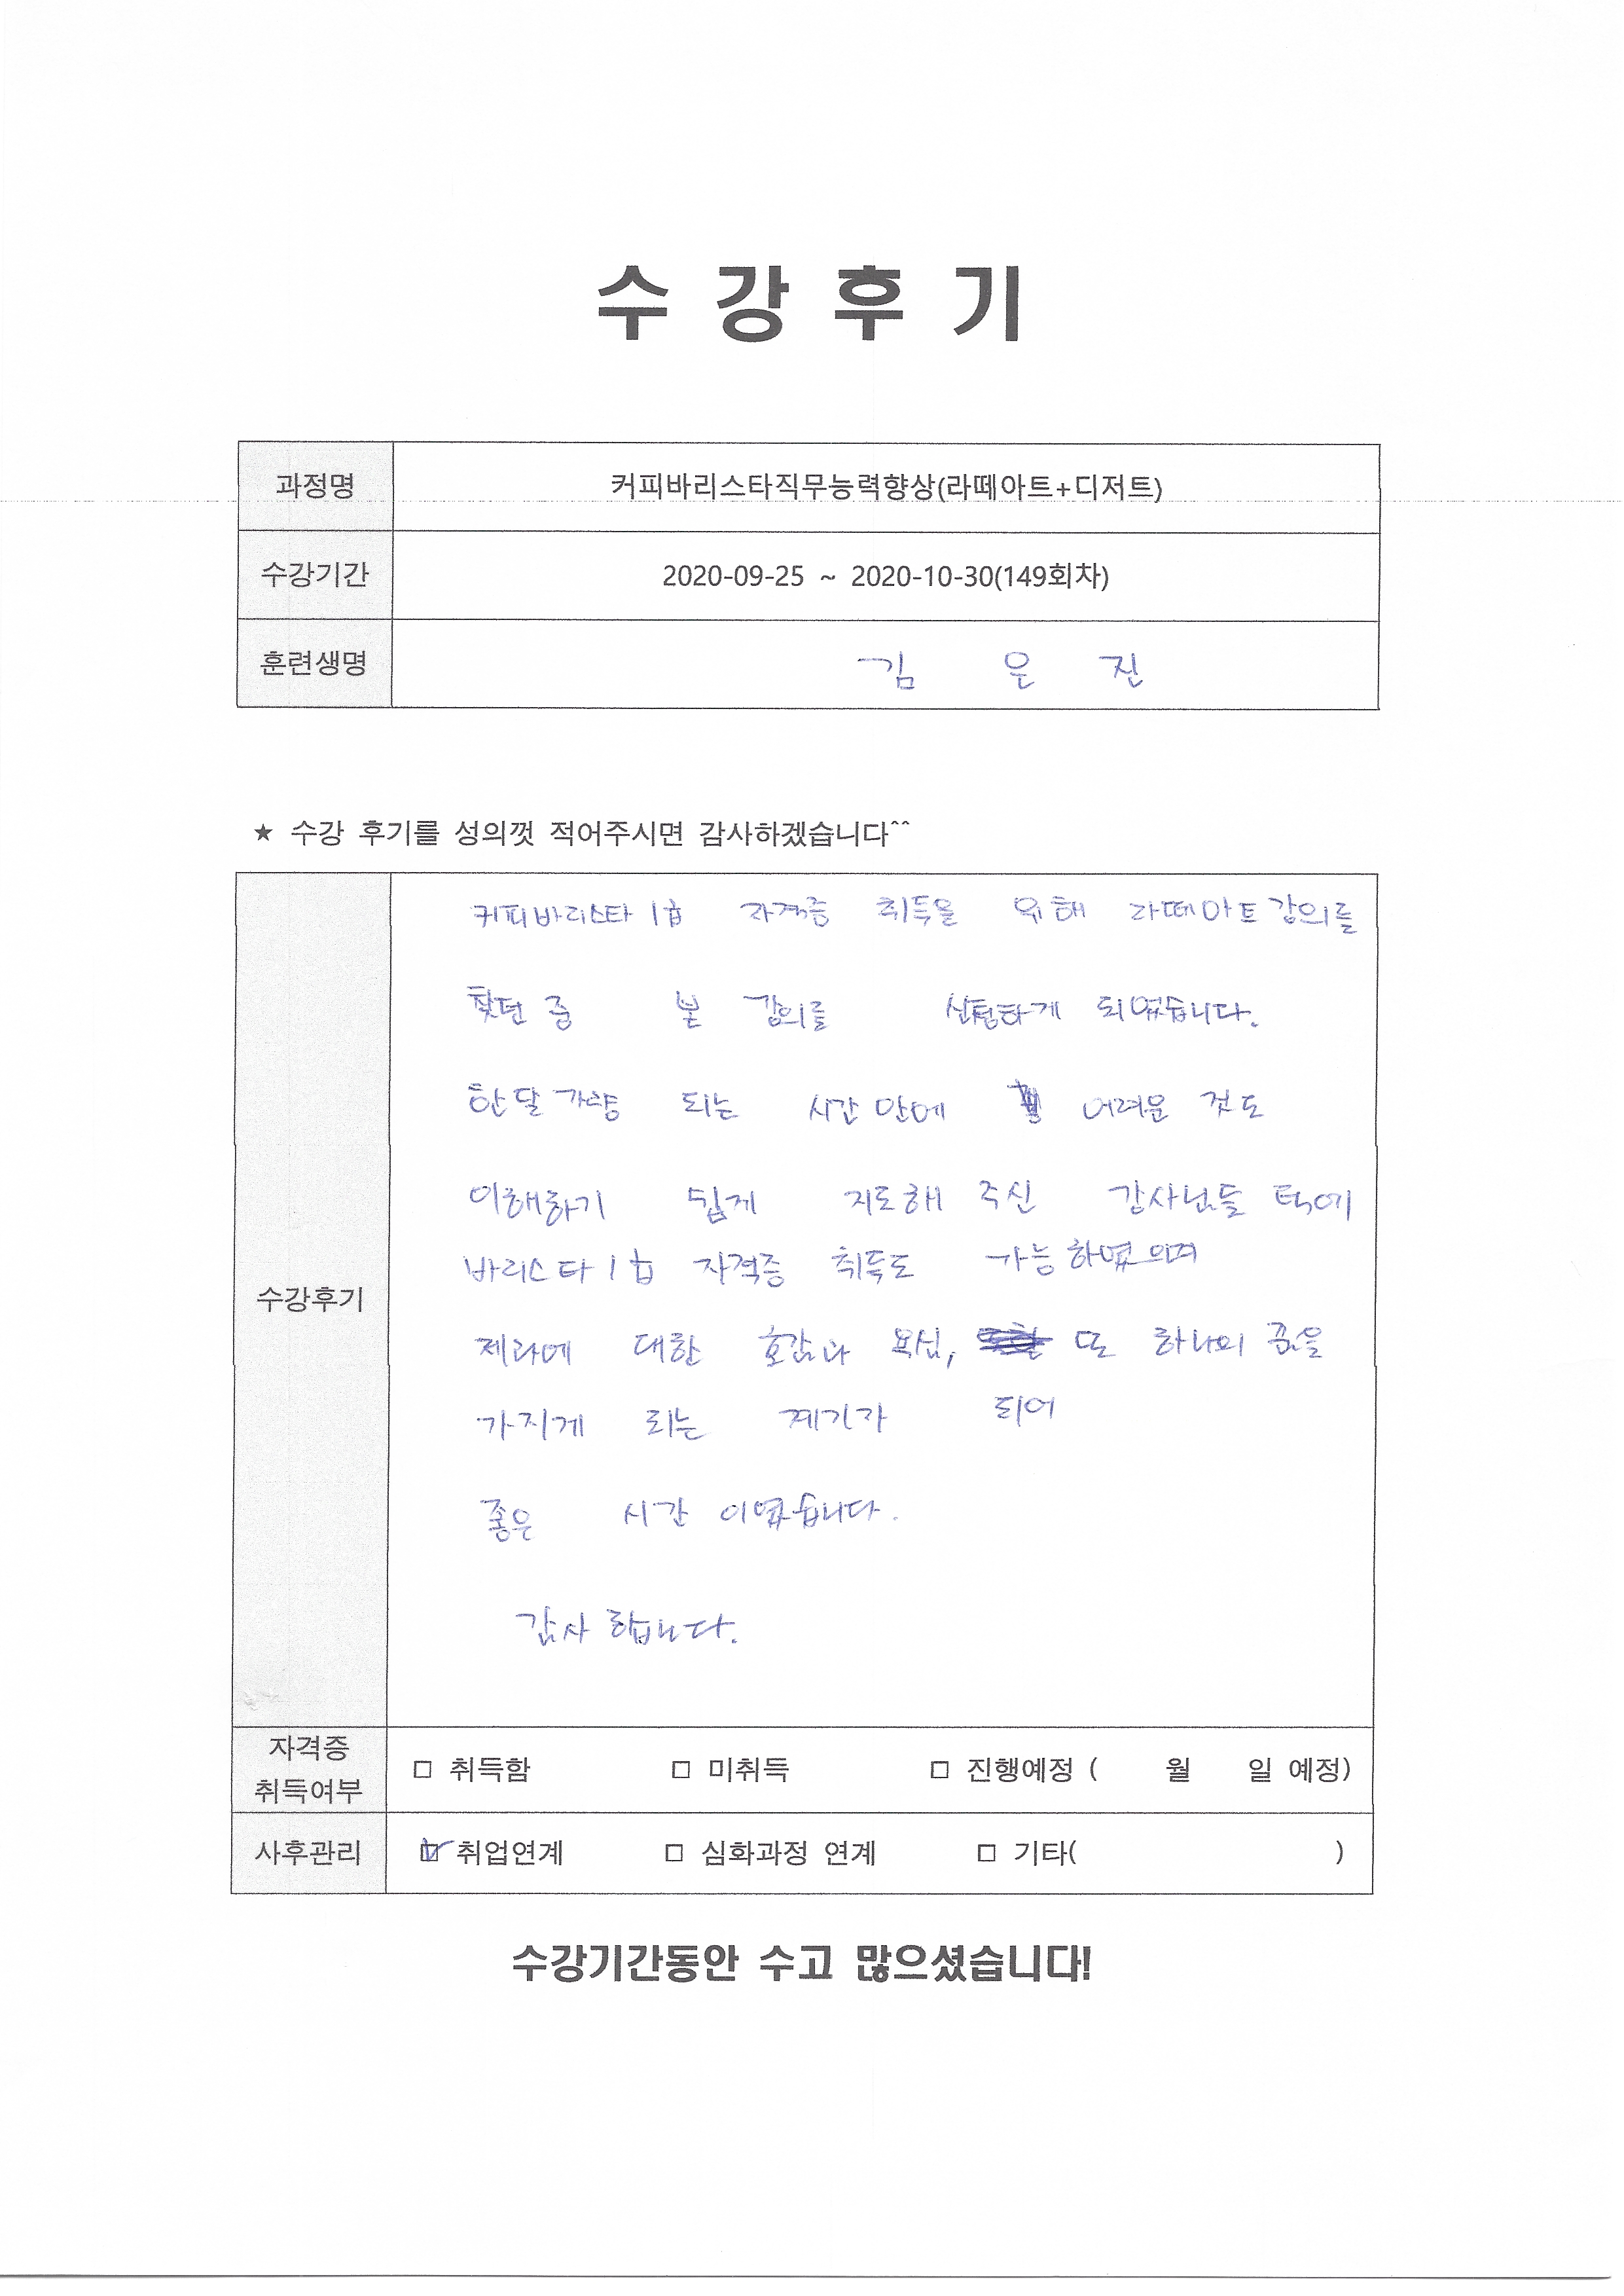 수 강 후 기
과정명 커피바리스타직무능력향상(라떼아트+디저트)
수강기간 2020-09-25 ~ 2020-10-30(149회차)
훈련생명 김 은 진
★ 수강 후기를 성의껏 적어주시면 감사하겠습니다^^
커피바리스타 1급 자격증 취득을 위해 라떼아트 강의를
찾던 중 본 강의를 신청하게 되었습니다.
한달 가량 되는 시간 안에 어려운 것도
이해하기 쉽게 지도해 주신 강사님들 턱에
바리스타 1급 자격증 취득도 가능하였으며
수강후기
제과에 대한 호감과 욕심, 또 하나의 꿈을
가지게 되는 계기가 되어
좋은 시간 이였습니다.
감사 합니다.
자격증 취득여부 □ 취득함 □ 미취득 □ 진행예정 ( 월 일 예정)
사후관리 ☑ 취업연계 □ 심화과정 연계 □ 기타( )
수강기간동안 수고 많으셨습니다!